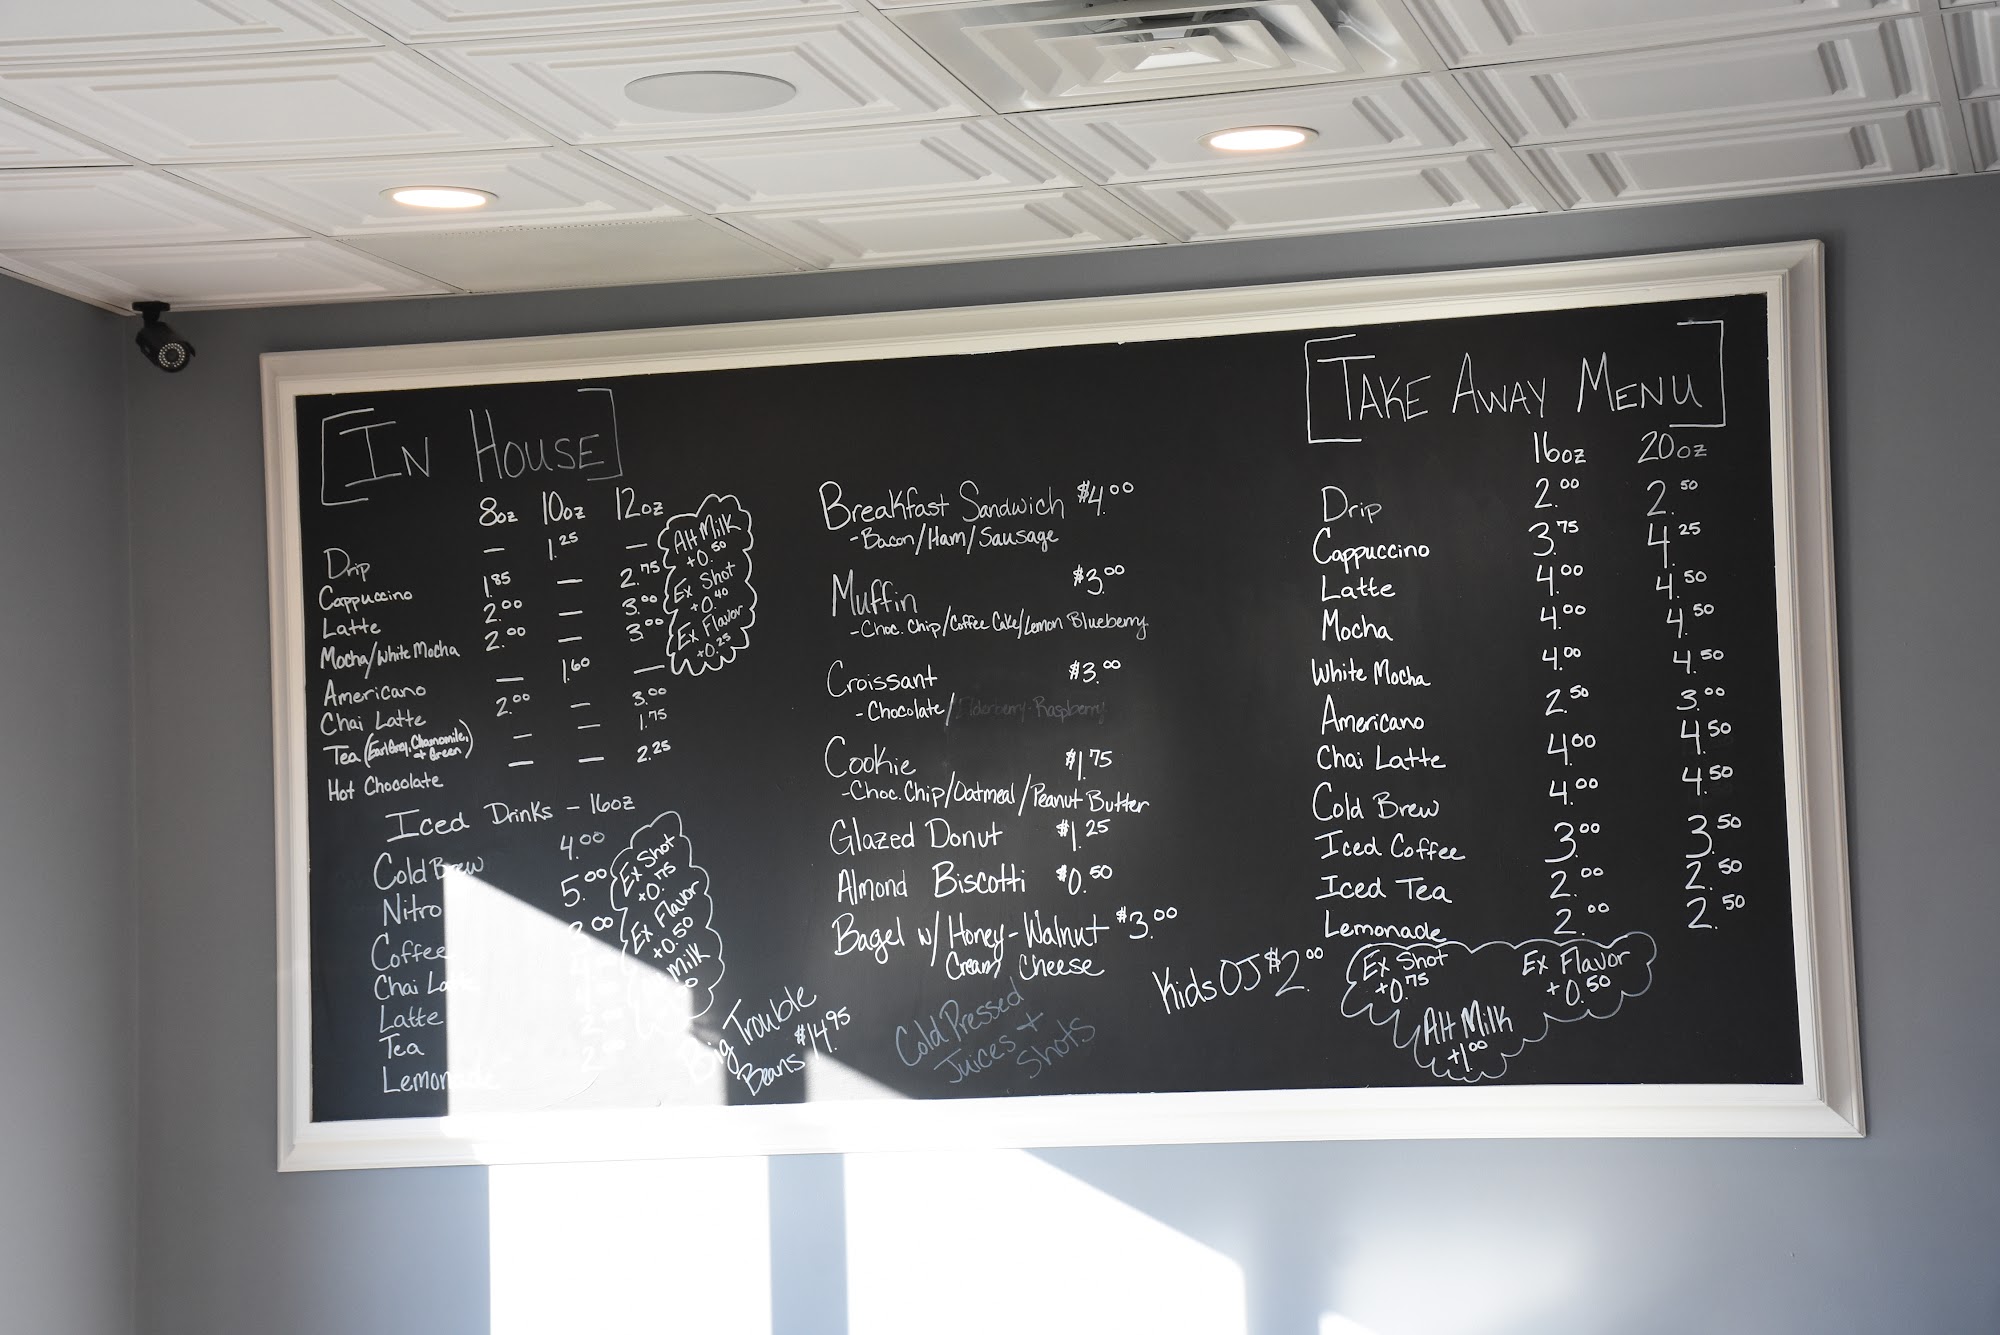 IN HOUSE
8oz 10oz 12oz
Drip — 1.25 —
Cappuccino 1.85 — 2.75
Latte 2.00 — 3.00
Mocha/White Mocha 2.00 — 3.00
Americano — 1.60 —
Chai Latte 2.00 — 3.00
Tea (Earl Grey, Chamomile, + Green) — — 1.75
Hot Chocolate — — 2.25
Alt Milk
+0.50
Ex Shot
+0.40
Ex Flavor
+0.25
Iced Drinks - 16oz
Cold Brew 4.00
Nitro 5.00
Coffee 3.00
Chai Latte
Latte
Tea
Lemonade
Ex Shot
+0.75
Ex Flavor
+0.50
Milk
Big Trouble
Beans $14.95
Breakfast Sandwich $4.00
-Bacon/Ham/Sausage
Muffin $3.00
-Choc. Chip/Coffee Cake/Lemon Blueberry
Croissant $3.00
-Chocolate/Elderberry-Raspberry
Cookie $1.75
-Choc. Chip/Oatmeal/Peanut Butter
Glazed Donut $1.25
Almond Biscotti $0.50
Bagel w/ Honey-Walnut $3.00
Cream Cheese
Cold Pressed
Juices +
Shots
Kids OJ $2.00
TAKE AWAY MENU
16oz 20oz
Drip 2.00 2.50
Cappuccino 3.75 4.25
Latte 4.00 4.50
Mocha 4.00 4.50
White Mocha 4.00 4.50
Americano 2.50 3.00
Chai Latte 4.00 4.50
Cold Brew 4.00 4.50
Iced Coffee 3.00 3.50
Iced Tea 2.00 2.50
Lemonade 2.00 2.50
Ex Shot
+0.75
Ex Flavor
+0.50
Alt Milk
+1.00